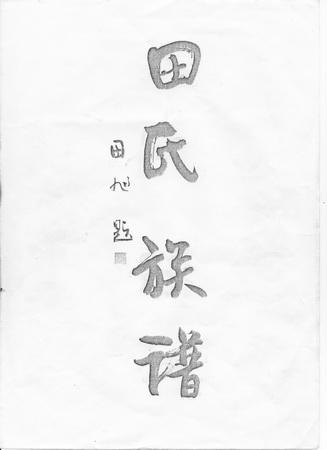 田氏族谱
田旭题